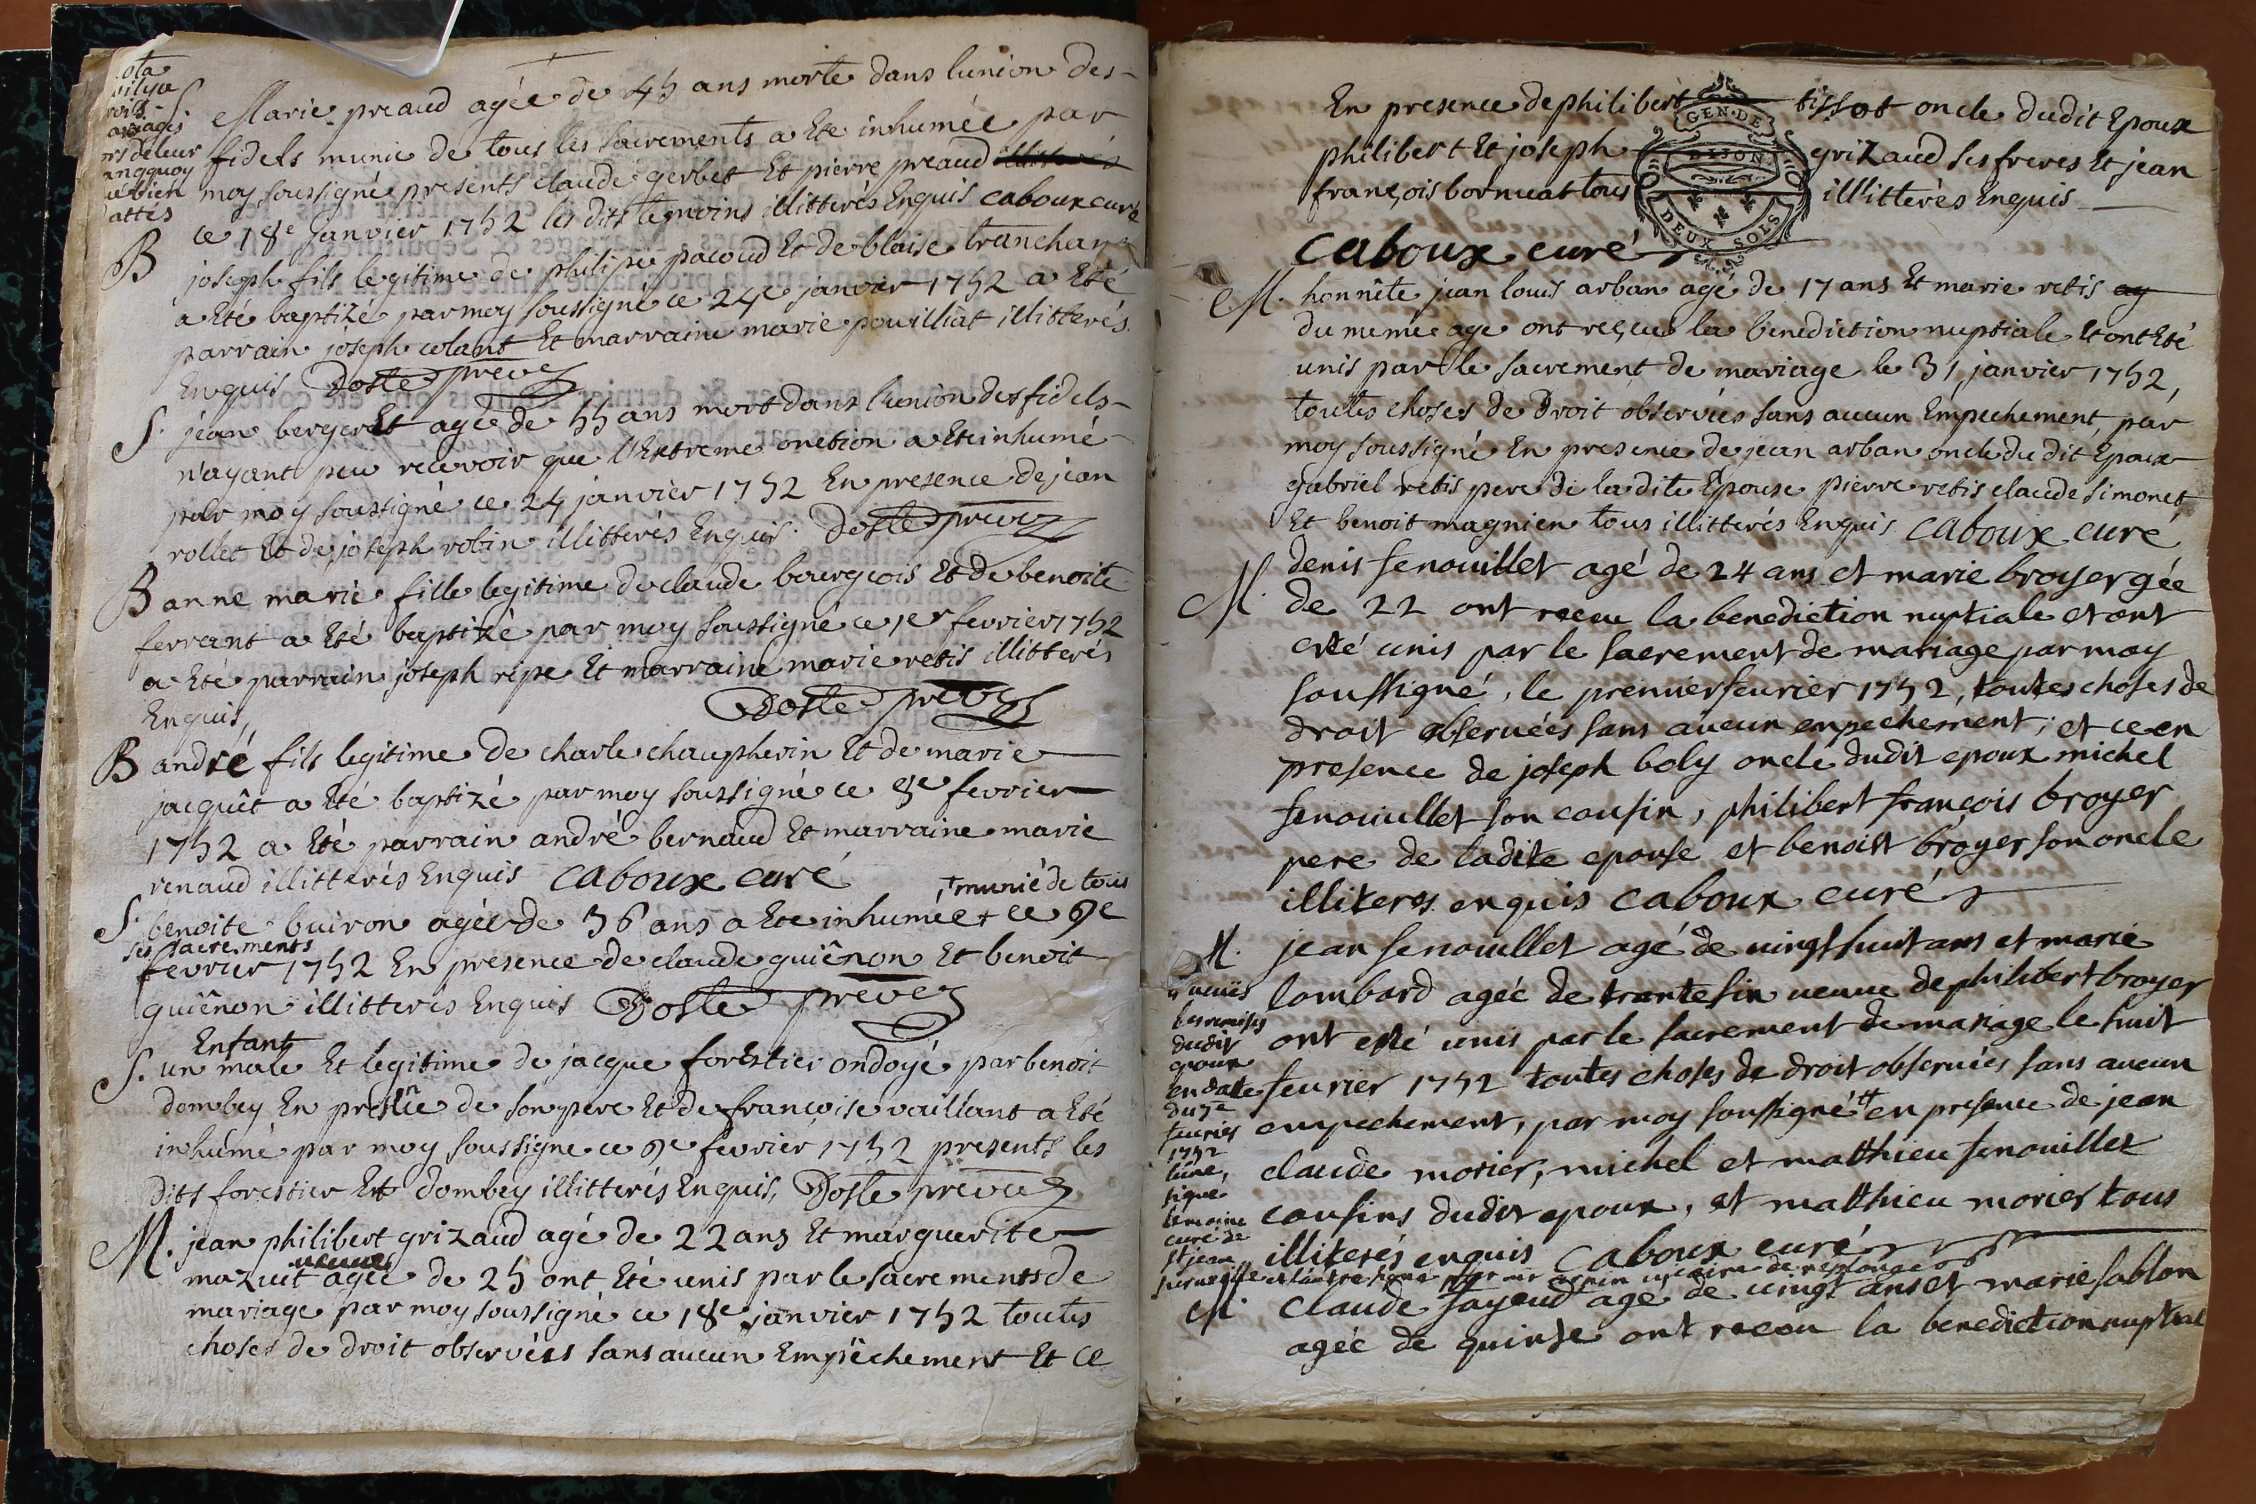 S. Marie preaud agée de 45 ans morte dans lunion des
fidels munie de tous les sacrements a Ete inhumée par
moy soussigné presents claude gerbet Et pierre preaud illitterés
ce 18e janvier 1752 les dits temoins illitterés Enquis caboux curé
B joseph fils legitime de philipe pacoud Et de blaise tranchan
a Eté baptizé par moy soussigné ce 24e janvier 1752 a Eté
parrain joseph colant Et marraine marie pouilliat illitterés
Enquis Doste prevez
S. jean bergeret agé de 55 ans mort dans l'union des fidels
n'ayant peu recevoir que l'Extreme onction a Ete inhumé
par moy soussigné ce 24 janvier 1752 En presence de jean
rollet Et de joseph robin illitterés Enquis. Doste prevez
B anne marie fille legitime de claude bourgeois Et de benoite
ferrant a Eté baptizé par moy soussigné ce 1er fevrier 1752
a Eté parrain joseph ripe Et marraine marie retis illitterés
Enquis, Doste prevez
B andré fils legitime de charle chaupherin Et de marie
jacquêt a Eté baptizé par moy soussigné ce 8e fevrier
1752 a Eté parrain andré bernaud Et marraine marie
renaud illitterés Enquis caboux curé
+ munie de tous
S. benoite buiron agée de 36 ans a Ete inhumée + ce 9e
ses sacrements
fevrier 1752 En presence de claude guiênon Et benoit
guiênon illitterés Enquis Doste prevez
Enfant
S. un male Et legitime de jacque forestier ondoyé par benoit
dombey En presence de son pere Et de françoise vaillant a Eté
inhumé par moy soussigne ce 9e fevrier 1752 presents les
dits forestier Et dombey illitterés Enquis, Doste prevez
M. jean philibert grizaud agé de 22 ans Et marguerite
veuve
mazuit agée de 25 ont Eté unis par le sacrements de
mariage par moy soussigné ce 18e janvier 1752 toutes
choses de droit observées sans aucun Empêchement Et ce
En presence de philibert tissot oncle dudit Epoux
philibert Et joseph grizaud ses freres Et jean
françois bornuat tous illitterés Enquis
caboux curé
GEN·DE
DIJON
DEUX SOLS
M. honnête jean louis arban agé de 17 ans Et marie retis ag
du meme age ont reçeu la benediction nuptiale Et ont Eté
unis par le sacrement de mariage le 31 janvier 1752,
toutes choses de Droit observées sans aucun Empechement, par
moy soussigné En presence de jean arban oncle du dit Epoux
gabriel retis pere de la dite Epouse pierre retis claude simonet
Et benoit magnien tous illitterés Enquis caboux curé
M. denis fenouillet agé de 24 ans et marie broyer gée
de 22 ont receu la benediction nuptiale et ont
esté unis par le sacrement de mariage par moy
soussigné, le premier feurier 1752, toutes choses de
droit obseruées sans aucun empechement; et ce en
presence de joseph boly oncle dudit epoux michel
fenouillet son cousin, philibert françois broyer
pere de ladite epouse et benoist broyer son oncle
illiteres enquis caboux curé
M. jean fenouillet agé de uingt huit ans et marie
lombard agée de trante six ueuue de philibert broyer
ont esté unis par le sacrement de mariage le huit
feurier 1752 toutes choses de droit obseruées sans aucun
empechement, par moy soussigné †† en presence de jean
claude morier, michel et matthieu fenouillet
cousins dudit epoux, et matthieu morier tous
illiterés enquis caboux curé
†† ueües
les remises
dudit
epoux
en date
du 7e
feurier
1752
l'une,
signe
lemoine
curé de
st jean
M. Claude fayeud agé de uingt ans et marie sablon
agée de quinse ont receu la benediction nuptiale